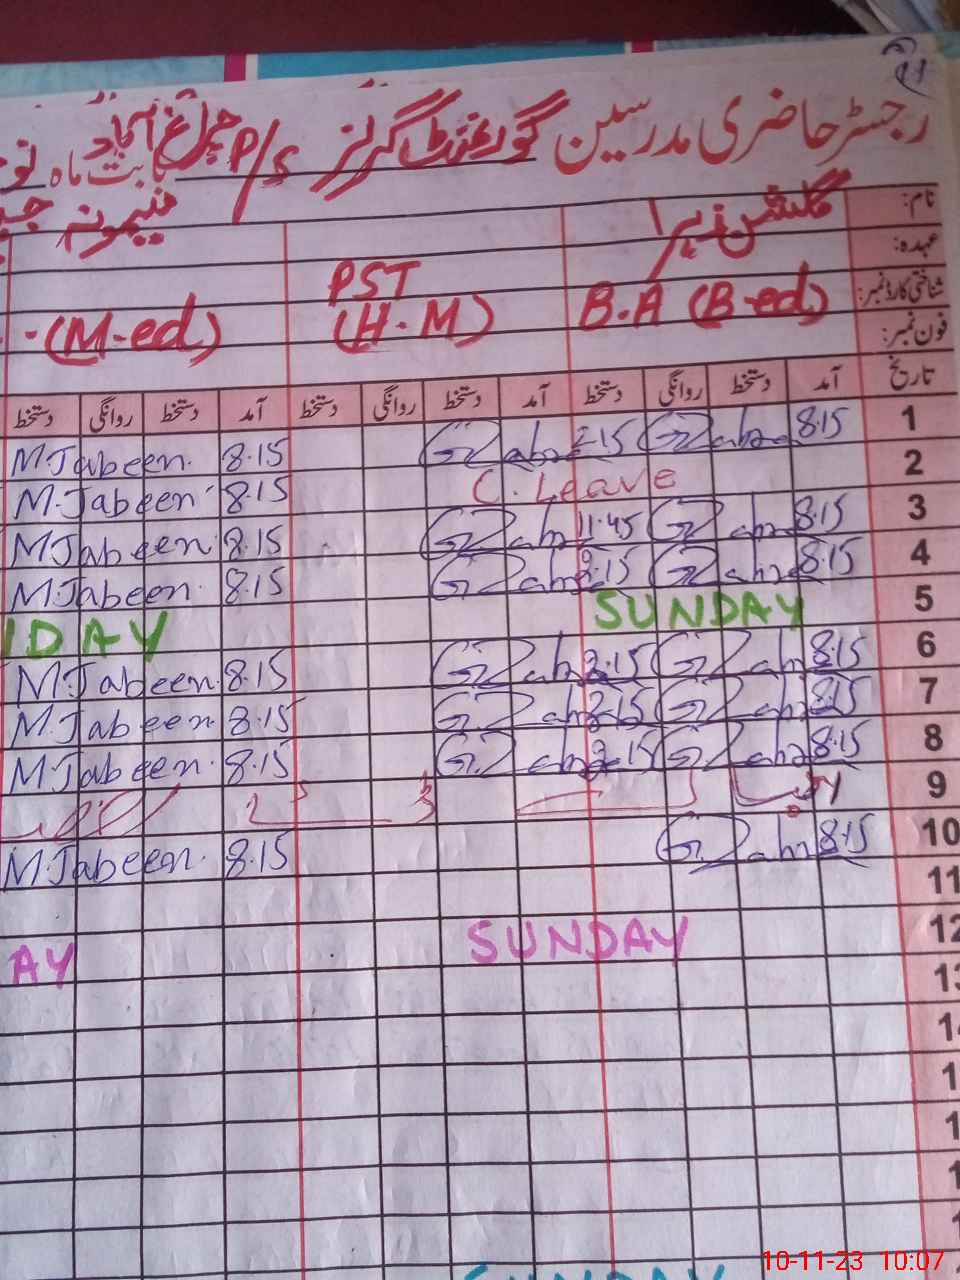 رجسٹر حاضری مدرسین گورنمنٹ گرلز P/S چراغ آباد بابت ماہ
نام: گلشن زہرا میمونہ
عہدہ:
شناختی کارڈ نمبر: PST
B.A (B-ed) (H-M) (M-ed)
فون نمبر:
تاریخ آمد دستخط روانگی دستخط آمد دستخط روانگی دستخط آمد دستخط روانگی دستخط
1 8.15 GZahra 2.15 GZahra 8.15 M.Jabeen.
2 C. Leave 8.15 M.Jabeen
3 8.15 GZahra 11.45 GZahra 8.15 M.Jabeen
4 8.15 GZahra 2.15 GZahra 8.15 M.Jabeen.
5 SUNDAY DAY
6 8.15 GZahra 2.15 GZahra 8.15 M.Jabeen.
7 8.15 GZahra 2.15 GZahra 8.15 M.Jabeen.
8 8.15 GZahra 2.15 GZahra 8.15 M.Jabeen.
9
10 8.15 GZahra 8.15 M.Jabeen.
11
12 SUNDAY AY
13
SUNDAY
10-11-23 10:07